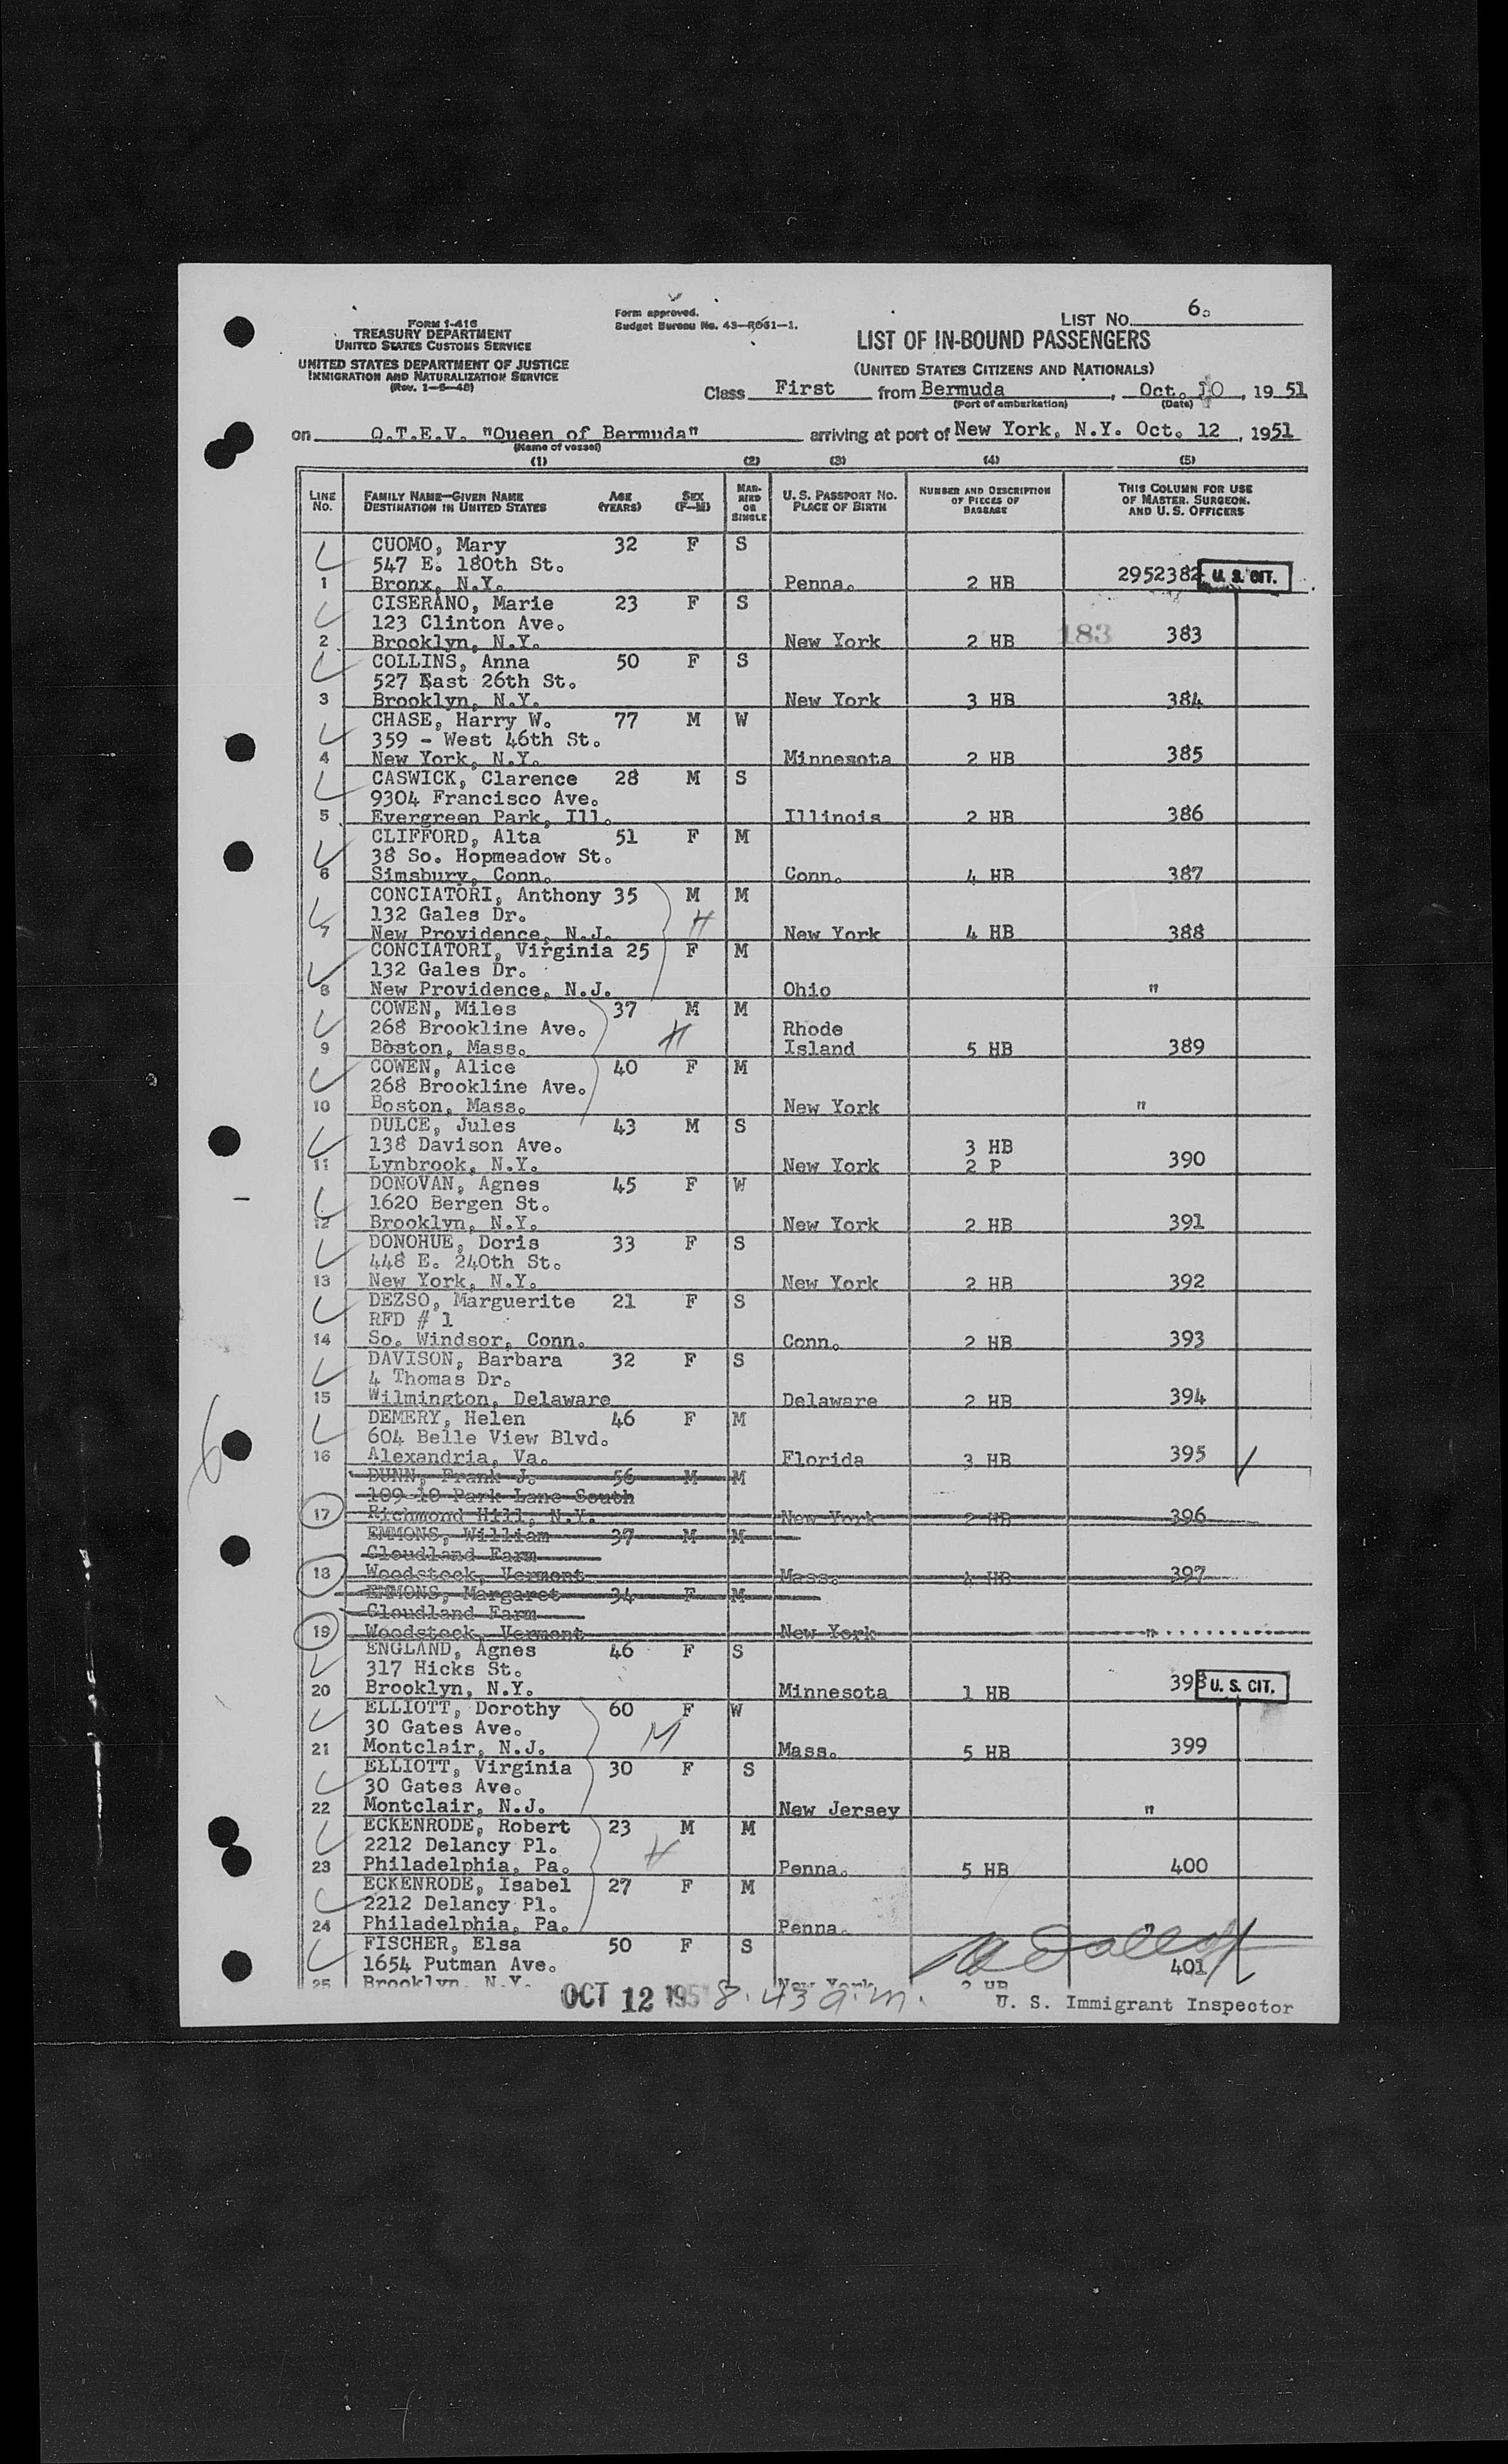 LIST NO. 6.
FORM I-416
TREASURY DEPARTMENT
UNITED STATES CUSTOMS SERVICE
UNITED STATES DEPARTMENT OF JUSTICE
IMMIGRATION AND NATURALIZATION SERVICE
(Rev. 1-5-48)
Form approved.
Budget Bureau No. 43-R061-1.
LIST OF IN-BOUND PASSENGERS
(UNITED STATES CITIZENS AND NATIONALS)
Class First from Bermuda, Oct. 10, 1951
(Port of embarkation) (Date)
on Q.T.E.V. "Queen of Bermuda" arriving at port of New York, N.Y. Oct. 12, 1951
(Name of vessel)
(1) (2) (3) (4) (5)
LINE NO. FAMILY NAME—GIVEN NAME DESTINATION IN UNITED STATES AGE (YEARS) SEX (F—M) MARRIED OR SINGLE U. S. PASSPORT NO. PLACE OF BIRTH NUMBER AND DESCRIPTION OF PIECES OF BAGGAGE THIS COLUMN FOR USE OF MASTER, SURGEON, AND U. S. OFFICERS
CUOMO, Mary 32 F S
547 E. 180th St. 2952382 U. S. CIT.
1 Bronx, N.Y. Penna. 2 HB
CISERANO, Marie 23 F S
123 Clinton Ave.
2 Brooklyn, N.Y. New York 2 HB 183 383
COLLINS, Anna 50 F S
527 East 26th St.
3 Brooklyn, N.Y. New York 3 HB 384
CHASE, Harry W. 77 M W
359 - West 46th St.
4 New York, N.Y. Minnesota 2 HB 385
CASWICK, Clarence 28 M S
9304 Francisco Ave.
5 Evergreen Park, Ill. Illinois 2 HB 386
CLIFFORD, Alta 51 F M
38 So. Hopmeadow St.
6 Simsbury, Conn. Conn. 4 HB 387
CONCIATORI, Anthony 35 M M
132 Gales Dr. H
7 New Providence, N.J. New York 4 HB 388
CONCIATORI, Virginia 25 F M
132 Gales Dr.
8 New Providence, N.J. Ohio "
COWEN, Miles 37 M M
268 Brookline Ave. H Rhode
9 Boston, Mass. Island 5 HB 389
COWEN, Alice 40 F M
268 Brookline Ave.
10 Boston, Mass. New York "
DULCE, Jules 43 M S
138 Davison Ave. 3 HB
11 Lynbrook, N.Y. New York 2 P 390
DONOVAN, Agnes 45 F W
1620 Bergen St.
12 Brooklyn, N.Y. New York 2 HB 391
DONOHUE, Doris 33 F S
448 E. 240th St.
13 New York, N.Y. New York 2 HB 392
DEZSO, Marguerite 21 F S
RFD # 1
14 So. Windsor, Conn. Conn. 2 HB 393
DAVISON, Barbara 32 F S
4 Thomas Dr.
15 Wilmington, Delaware Delaware 2 HB 394
DEMERY, Helen 46 F M
604 Belle View Blvd.
16 Alexandria, Va. Florida 3 HB 395
DUNN, Frank J. 56 M M
109-10 Park Lane South
17 Richmond Hill, N.Y. New York 2 HB 396
EMMONS, William 37 M M
Cloudland Farm
18 Woodstock, Vermont Mass. 4 HB 397
EMMONS, Margaret 34 F M
Cloudland Farm
19 Woodstock, Vermont New York "
ENGLAND, Agnes 46 F S
317 Hicks St.
20 Brooklyn, N.Y. Minnesota 1 HB 398 U. S. CIT.
ELLIOTT, Dorothy 60 F W
30 Gates Ave. M
21 Montclair, N.J. Mass. 5 HB 399
ELLIOTT, Virginia 30 F S
30 Gates Ave.
22 Montclair, N.J. New Jersey "
ECKENRODE, Robert 23 M M
2212 Delancy Pl. H
23 Philadelphia, Pa. Penna. 5 HB 400
ECKENRODE, Isabel 27 F M
2212 Delancy Pl.
24 Philadelphia, Pa. Penna. "
FISCHER, Elsa 50 F S
1654 Putman Ave. 401
25 Brooklyn, N.Y. New York 2 HB
OCT 12 1951 8:43 a.m. U. S. Immigrant Inspector
6